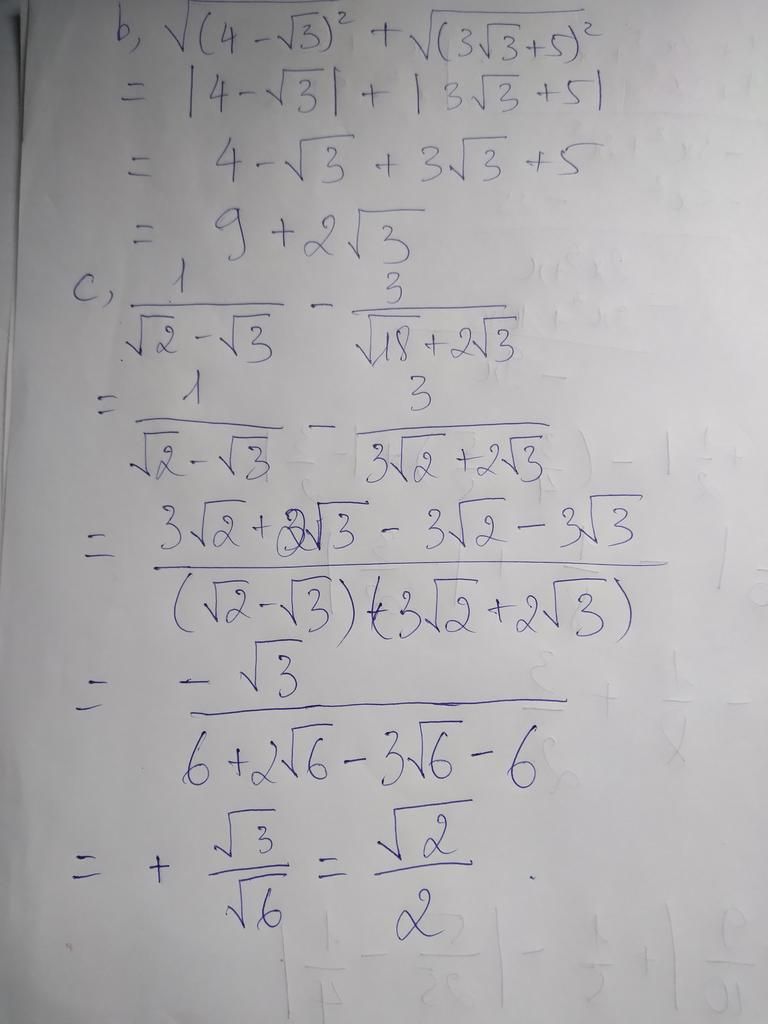 b, √(4 - √3)² + √(3√3 + 5)²
= |4 - √3| + |3√3 + 5|
= 4 - √3 + 3√3 + 5
= 9 + 2√3
c, 1/(√2 - √3) - 3/(√18 + 2√3)
= 1/(√2 - √3) - 3/(3√2 + 2√3)
= (3√2 + 2√3 - 3√2 - 3√3)/((√2 - √3)(3√2 + 2√3))
= -√3/(6 + 2√6 - 3√6 - 6)
= + √3/√6 = √2/2 .